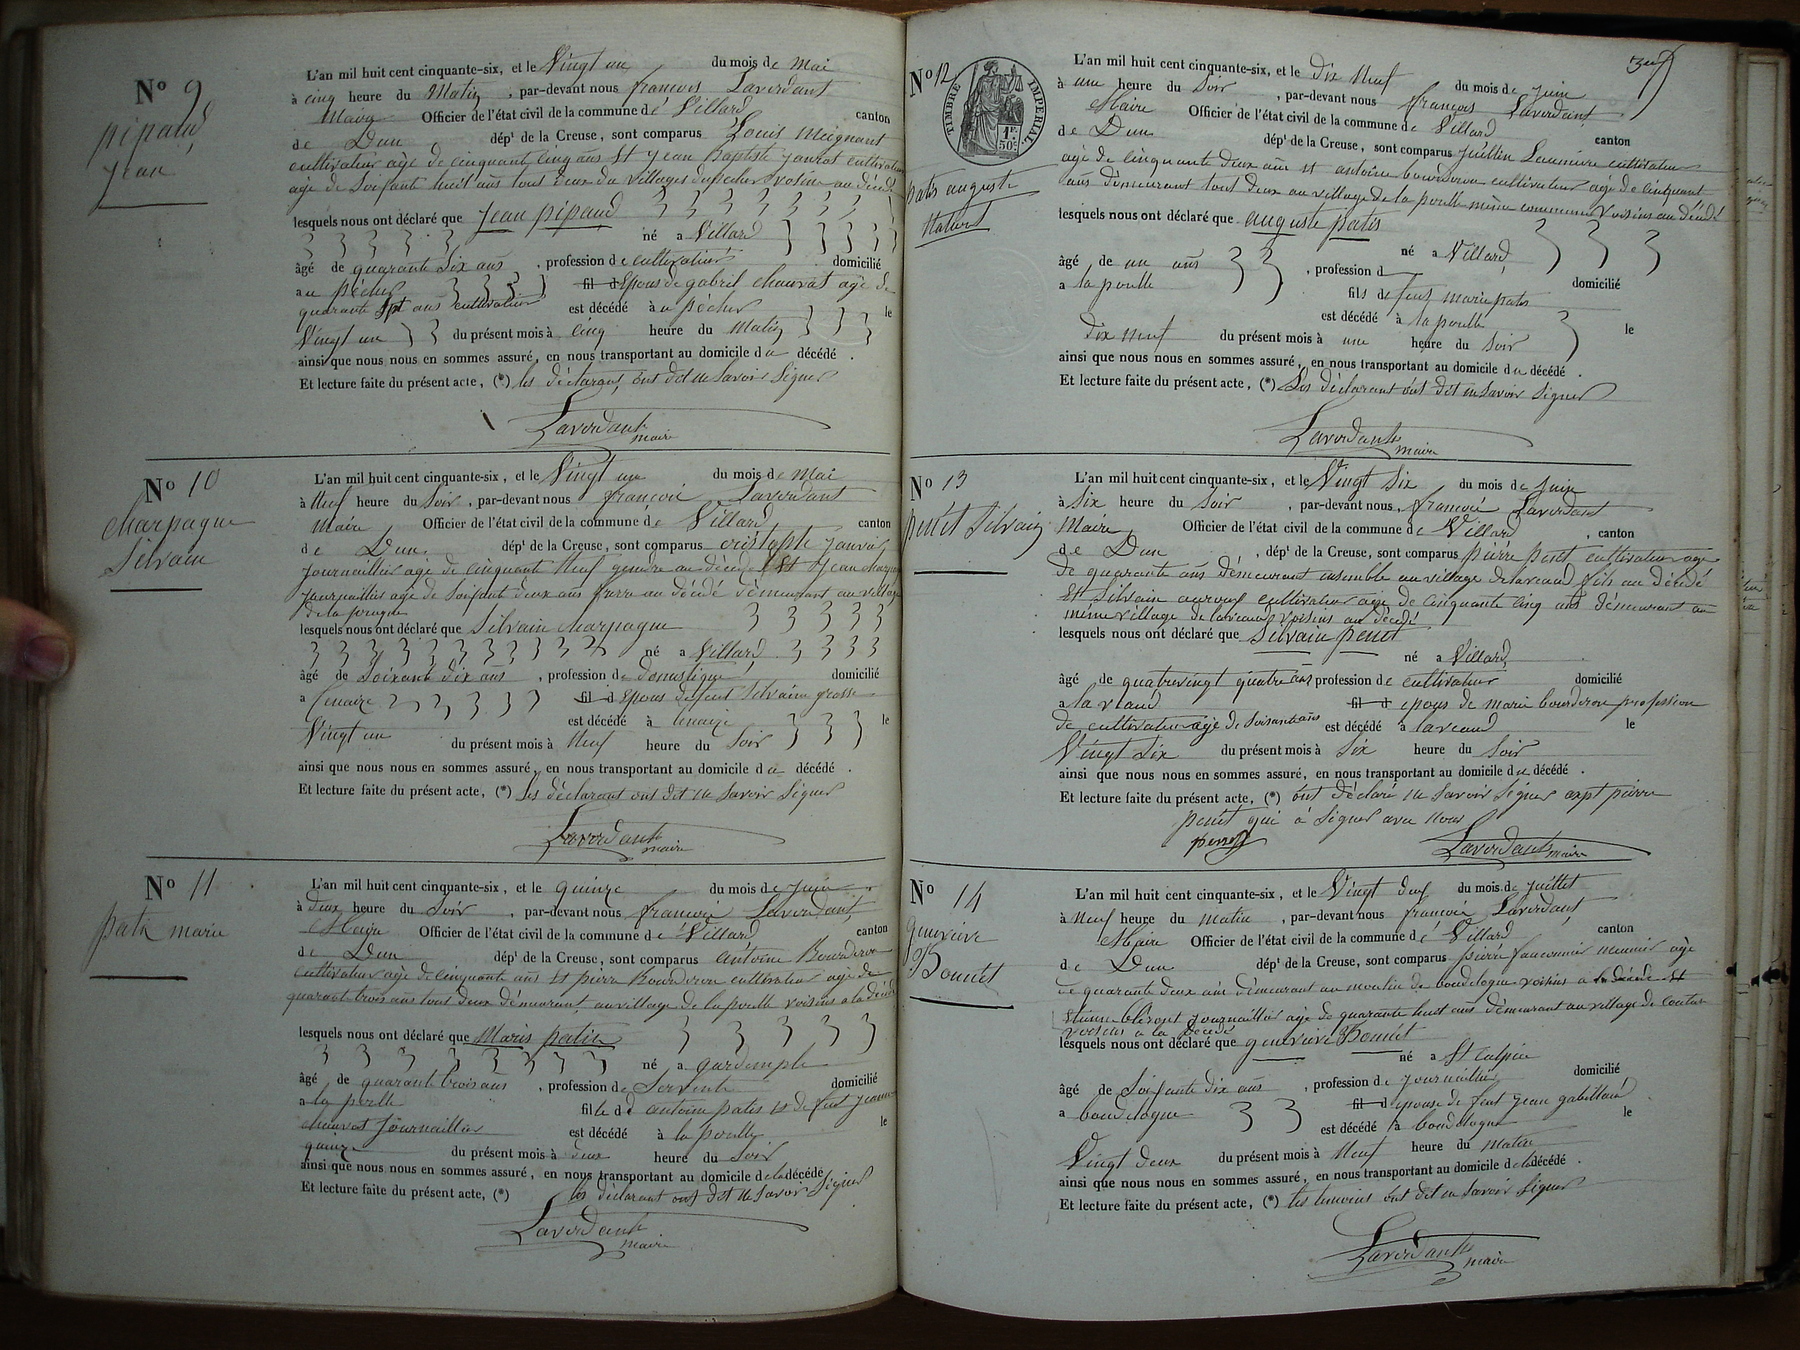 No 9
pipaud
jean
L'an mil huit cent cinquante-six, et le Vingt un du mois de Mai
à cinq heure du Matin, par-devant nous françois Laverdant
Officier de l'état civil de la commune de Villard canton
de Dun dépt de la Creuse, sont comparus Louis Meignant
cultivateur age de cinquante cinq ans Et jean Baptiste janvot cultivateur
age de Soifante huit ans tous deux du Villages voisin au décédé
lesquels nous ont déclaré que jean pipaud
né a Villard
âgé de quarante Six ans, profession de cultivateur domicilié
au pécher fil d Epous de gabriel chauvat age de
quarante Sept ans cultivateur est décédé à au pécher le
Vingt un du présent mois à cinq heure du Matin
ainsi que nous nous en sommes assuré, en nous transportant au domicile du décédé.
Et lecture faite du présent acte, (*) les déclarans ont dit ne Savoir Signer
Laverdant
maire
No 10
charpagne
Silvain
L'an mil huit cent cinquante-six, et le Vingt un du mois de Mai
à Neuf heure du Soir, par-devant nous françois Laverdant
Maire Officier de l'état civil de la commune de Villard canton
de Dun dépt de la Creuse, sont comparus cristophe janvot
journaillier age de cinquante Neuf gendre au décédé Et jean
journaillier age de Soifant deux ans frere au décédé démeurant au village
de la
lesquels nous ont déclaré que Silvain charpagne
né a Villard
âgé de Soixante dix ans, profession de domestique domicilié
a Lenaize fil d Epous de feut Silvaine grosse
est décédé à Lenaize le
Vingt un du présent mois à Neuf heure du Soir
ainsi que nous nous en sommes assuré, en nous transportant au domicile du décédé.
Et lecture faite du présent acte, (*) les déclarant ont dit ne Savoir Signer
Laverdant
maire
No 11
patis marie
L'an mil huit cent cinquante-six, et le quinze du mois de juin
à deux heure du Soir, par-devant nous françois Laverdant
Maire Officier de l'état civil de la commune de Villard canton
de Dun dépt de la Creuse, sont comparus antoine Bourderon
cultivateur age de cinquante ans Et pierre Bourderon cultivateur age de
quarant trois ans tous deux démeurant au village de la poulle voisins a la décédé
lesquels nous ont déclaré que Marie patis
né a
âgé de quarante trois ans, profession de Servente domicilié
a la poulle fille de d antoine patis et de feut jeanne
chauvat journaillier est décédé à la poulle le
quinze du présent mois à deux heure du Soir
ainsi que nous nous en sommes assuré, en nous transportant au domicile de la décédé
Et lecture faite du présent acte, (*) les déclarant ont dit ne Savoir Signer
Laverdant
maire
No 12
TIMBRE IMPERIAL
1F.
50c.
patis auguste
Naturel
L'an mil huit cent cinquante-six, et le dix Neuf du mois de juin
à une heure du Soir, par-devant nous françois Laverdant
Maire Officier de l'état civil de la commune de Villard canton
de Dun dépt de la Creuse, sont comparus cultivateur
agé de cinquante deux ans et antoine bourderon cultivateur agé de cinquant
ans démeurant tout deux au village de la poulle même commune Voisins au décédé
lesquels nous ont déclaré que auguste patis
né a Villard
âgé de un ans, profession d domicilié
a la poulle fils de feut marie patis
est décédé à la poulle le
dix neuf du présent mois à une heure du Soir
ainsi que nous nous en sommes assuré, en nous transportant au domicile du décédé.
Et lecture faite du présent acte, (*) Les déclarant ont dit ne Savoir Signer
Laverdant
maire
No 13
penet Silvain
L'an mil huit cent cinquante-six, et le Vingt Six du mois de juin
à Six heure du Soir, par-devant nous françois Laverdant
Maire Officier de l'état civil de la commune de Villard, canton
de Dun, dépt de la Creuse, sont comparus pierre penet cultivateur age
de quarante ans démeurant ensemble au village de laveaud fils au décédé
Et Silvain cultivateur age de cinquante cinq ans démeurant au
même village de laveaud voisins au décédé
lesquels nous ont déclaré que Silvain penet
né a Villard
âgé de quatrevingt quatre ans profession de cultivateur domicilié
a la veaud fil d epous de marie bourderon profession
de cultivateur agé de Soisante ans est décédé à laveaud le
Vingt Six du présent mois à Six heure du Soir
ainsi que nous nous en sommes assuré, en nous transportant au domicile du décédé.
Et lecture faite du présent acte, (*) ont déclaré ne Savoir Signer expt pierre
penet qui a Signer avec Nous
penet
Laverdant maire
No 14
genevieve
Bonnet
L'an mil huit cent cinquante-six, et le Vingt deux du mois de juillet
à Neuf heure du matin, par-devant nous françois Laverdant
Maire Officier de l'état civil de la commune de Villard canton
de Dun dépt de la Creuse, sont comparus pierre fauconnier meunier age
de quarante deux ans démeurant au moulin de boudelogne voisins a la décédé Et
journaillier age de quarante huit ans démeurant au village de
voisins a la décédé
lesquels nous ont déclaré que genevieve Bonnet
né a St Sulpice
âgé de Soifante dix ans, profession de journaillier domicilié
a boudelogne fil d epouse de feut jean gabillaud
est décédé à boudelogne le
Vingt deux du présent mois à Neuf heure du matin
ainsi que nous nous en sommes assuré, en nous transportant au domicile de la décédé.
Et lecture faite du présent acte, (*) les temoins ont dit ne Savoir Signer
Laverdant
maire